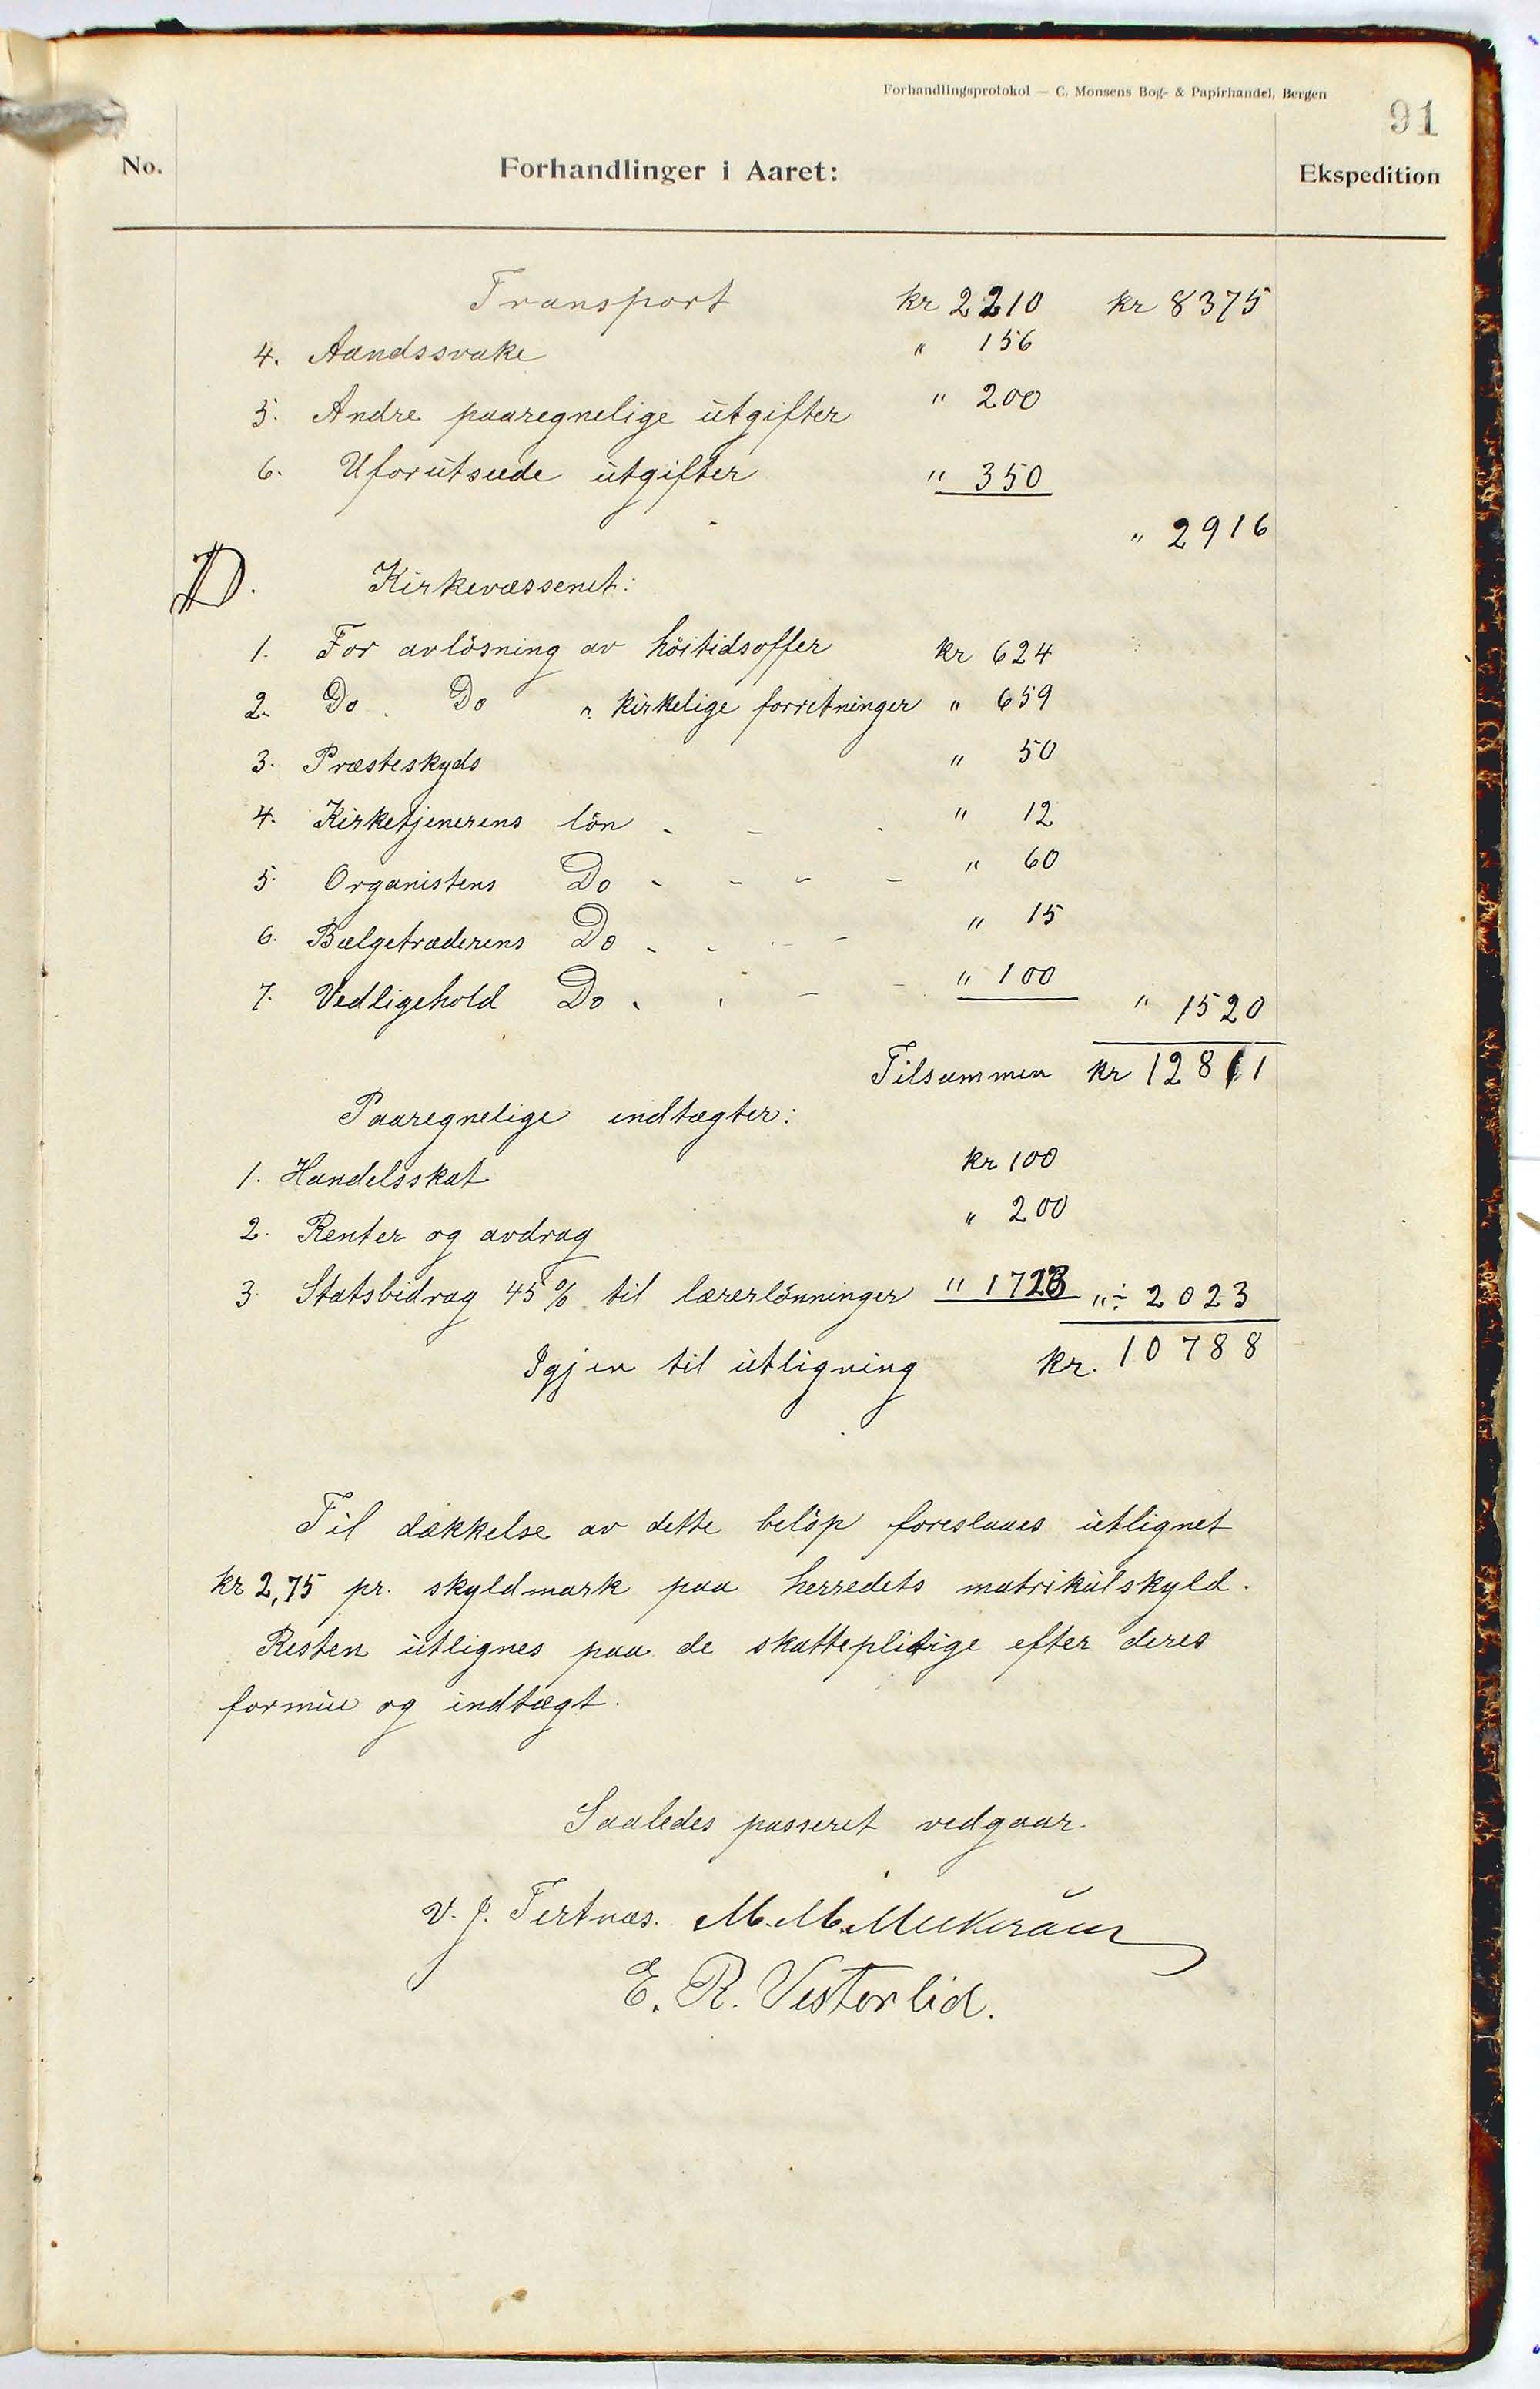 Forhandlingsprotokol — C. Monsens Bog- & Papirhandel, Bergen
91
No. Forhandlinger i Aaret: Ekspedition
Transport kr 2210 kr 8375
4. Aandssvake " 156
5. Andre paaregnelige utgifter " 200
6. Uforutseede utgifter " 350
" 2916
D. Kirkevæssenet:
1. For avlösning av höitidsoffer kr 624
2. Do Do " kirkelige forretninger " 659
3. Præsteskyds " 50
4. Kirketjenerens lön - - - " 12
5. Organistens Do - - - - " 60
6. Bælgetræderens Do - - - - " 15
7. Vedligehold Do - - - - " 100 " 1520
Tilsammen kr 12811
Paaregnelige indtægter:
1. Handelsskat kr 100
2. Renter og avdrag " 200
3. Statsbidrag 45% til lærerlönninger " 1723 " ÷ 2023
Igjen til utligning kr. 10788
Til dækkelse av dette belöp foreslaaes utlignet
kr 2,75 pr. skyldmark paa herredets matrikulskyld.
Resten utlignes paa de skatteplitige efter deres
formue og indtægt.
Saaledes passeret vedgaar.
V. J. Tertnæs. M. M. Mukeraaen
E. R. Vesterlid.